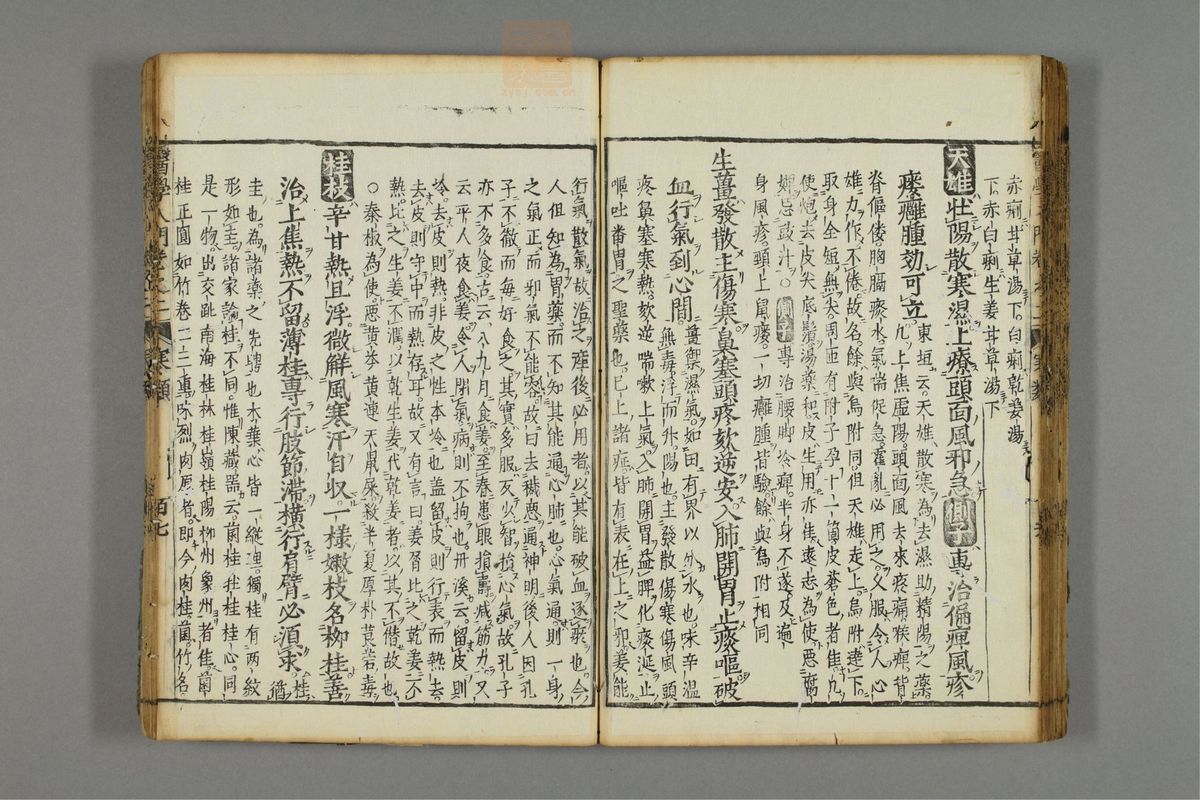 赤痢甘草湯下白痢乾姜湯
下赤白痢生姜甘草湯下
天雄壯陽散寒濕上療頭面風邪急側子專治偏痺風疹
瘻癰腫効可立東垣云天雄散寒為去濕助精陽之藥
脊傴僂胸膈痰水氣喘促急霍亂必用之又服令人心
雄力作不倦故名餘與烏附同但天雄走上烏附達下
取身全短無尖周匝有附子孕十一箇皮蒼色者佳凡
使炮去皮尖底鬚湯藥和皮生用亦佳遠志為使惡腐
婢忌豉汁○側子專治腰脚冷痺半身不遂及遍
身風疹頸上鼠瘻一切癰腫皆驗餘與烏附相同
生薑發散主傷寒鼻塞頭疼欬逆安入肺開胃止痰嘔破
血行氣到心間薑禦濕氣如田有界以分水也味辛温
無毒浮而升陽也主發散傷寒傷風頭
疼鼻塞寒熱欬逆喘嗽上氣入肺開胃益脾化痰涎止
嘔吐畨胃之聖藥也已上諸症皆有表在上之邪姜能
行氣散氣故治之產後必用者以其能破血逐瘀也今
人但知為胃藥而不知其能通心肺也心氣通則一身
之氣正而邪氣不能容故曰去穢惡通神明後人因孔
子不徹而每好食之其實多服灰火智損心氣故孔子
亦不多食古云八九月食姜至春患眼損壽减筋力又
云平人夜食姜令人閉氣病則不拘也丹溪云留皮則
冷去皮則熱非皮之性本冷也盖留皮則行表而熱去
去皮則守中而熱存耳故又有言曰姜屑比之乾姜不
熱比之生姜不潤以乾生姜代乾姜者以其不僭故也
○秦椒為使惡黃芩黃連天鼠屎殺半夏厚朴莨菪毒
桂枝辛甘熱且浮微解風寒汗自収一樣嫩枝名柳桂善
治上焦熱不留薄桂專行肢節滯橫行肩臂必須求桂猶
圭也為諸藥之先聘也木葉心皆一縱理獨桂有兩紋
形如圭諸家論桂不同惟陳藏器云菌桂牡桂桂心同
是一物出交趾南海桂林桂嶺桂陽柳州象州者佳菌
桂正圓如竹卷二三重味烈肉厚者即今肉桂菌竹名